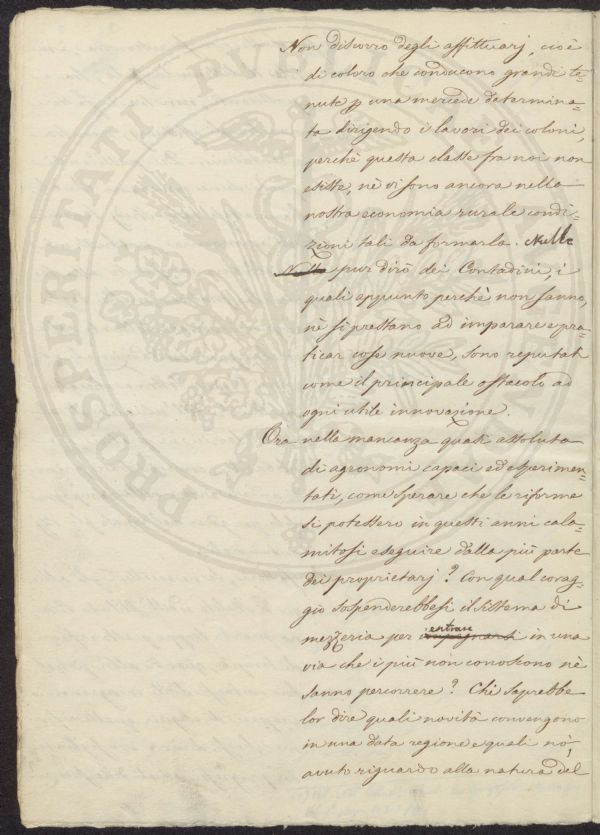 Non discorro degli affittuarj, cioè
di coloro che conducono grandi te=
nute p una mercede determina=
ta dirigendo i lavori dei coloni,
perchè questa classe fra noi non
esiste, nè vi sono ancora nella
nostra economia rurale condi=
zioni tali da formarla. Nulla
Nulla pur dirò dei Contadini, i
quali appunto perchè non sanno,
nè si prestano ad imparare e pra=
ticar cose nuove, sono reputati
come il principale ostacolo ad
ogni utile innovazione.
Ora nella mancanza quasi assoluta
di agronomi capaci ed esperimen=
tati, come sperare che le riforme
si potessero in questi anni cala=
mitosi eseguire dalla più parte
dei proprietarj? Con qual corag=
gio sospenderebbesi il sistema di
mezzeria per impegnarsi entrare in una
via che i più non conoscono nè
sanno percorrere? Chi saprebbe
lor dire quali novità convengono
in una data regione e quali nò,
avuto riguardo alla natura del
PROSPERITATI PUBLICAE